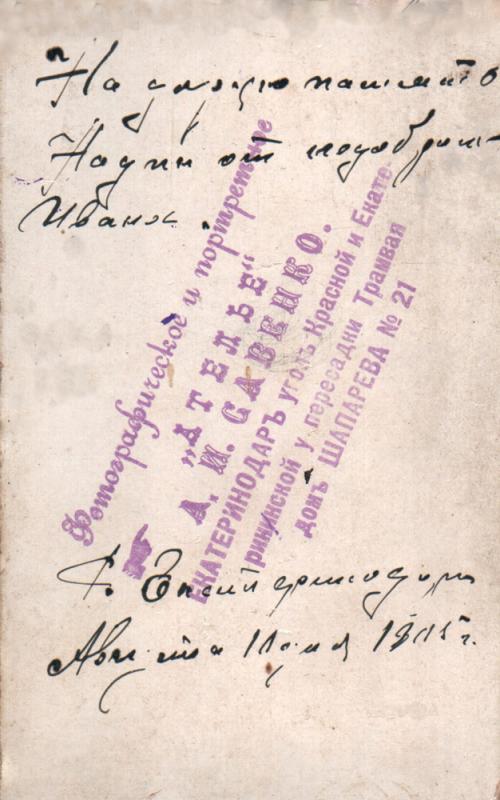 На добрую память
Надин от
Ивана.
Фотографическое и портретное
„АТЕЛЬЕ“
А. И. САВЕНКО.
ЕКАТЕРИНОДАРЪ уголъ Красной и Екате-
рининской у пересадки Трамвая
домъ ШАПАРЕВА № 21
Г. Екатеринодаръ
Августа 1915 г.